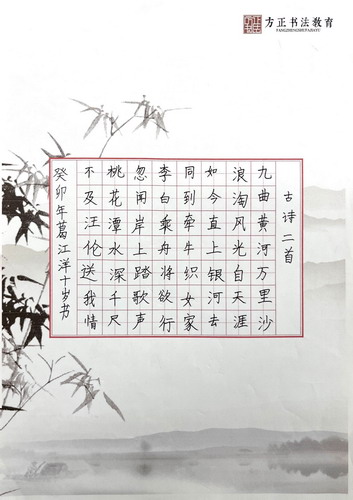 方正书法教育
FANGZHENGSHUFAJIAOYU
古诗二首
九曲黄河万里沙
浪淘风光自天涯
如今直上银河去
同到牵牛织女家
李白乘舟将欲行
忽闻岸上踏歌声
桃花潭水深千尺
不及汪伦送我情
癸卯年葛江洋十岁书